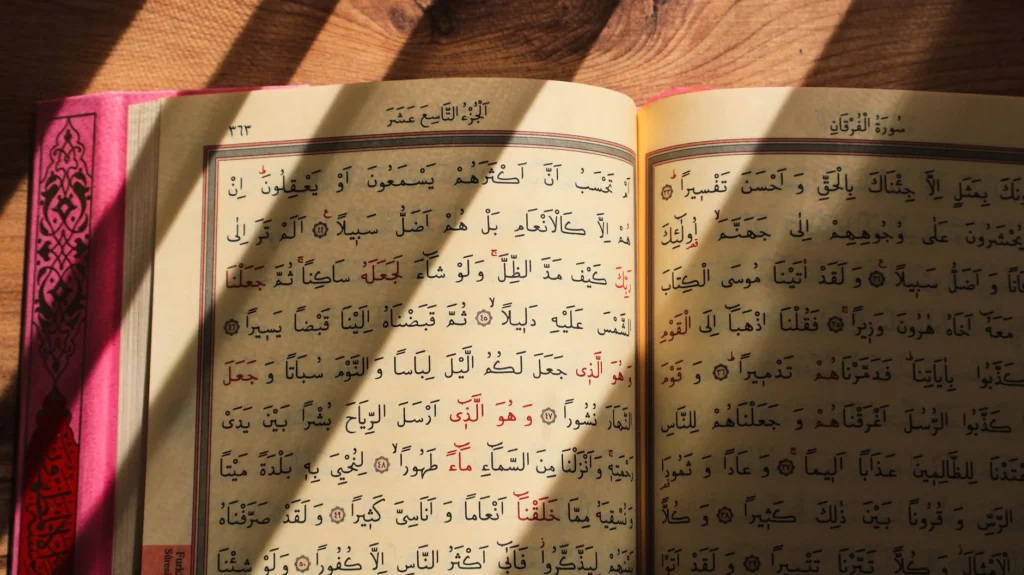 سُورَةُ الْفُرْقَانِ
بِمَثَلٍ اِلَّا جِئْنَاكَ بِالْحَقِّ وَ اَحْسَنَ تَفْسِيراًۜ ﴿٣٣﴾
يُحْشَرُونَ عَلٰى وُجُوهِهِمْ اِلٰى جَهَنَّمَۙ اُو۬لٰٓئِكَ
وَ اَضَلُّ سَبِيلاً۟ ﴿٣٤﴾ وَ لَقَدْ اٰتَيْنَا مُوسَى الْكِتَابَ
مَعَهُٓ اَخَاهُ هٰرُونَ وَزِيراًۚ ﴿٣٥﴾ فَقُلْنَا اذْهَبَٓا اِلَى الْقَوْمِ
كَذَّبُوا بِاٰيَاتِنَاۜ فَدَمَّرْنَاهُمْ تَدْمِيراًۜ ﴿٣٦﴾ وَ قَوْمَ
كَذَّبُوا الرُّسُلَ اَغْرَقْنَاهُمْ وَ جَعَلْنَاهُمْ لِلنَّاسِ
لِلظَّالِمِينَ عَذَاباً اَلِيماًۚ ﴿٣٧﴾ وَ عَاداً وَ ثَمُودَا۬
الرَّسِّ وَ قُرُوناً بَيْنَ ذٰلِكَ كَثِيراً ﴿٣٨﴾ وَ كُلّاً
الْاَمْثَالَۘ وَ كُلّاً تَبَّرْنَا تَتْبِيراً ﴿٣٩﴾ وَ لَقَدْ اَتَوْا
٣٦٣ اَلْجُزْءُ التَّاسِعَ عَشَرَ
اَمْ تَحْسَبُ اَنَّ اَكْثَرَهُمْ يَسْمَعُونَ اَوْ يَعْقِلُونَۜ اِنْ
هُمْ اِلَّا كَالْاَنْعَامِ بَلْ هُمْ اَضَلُّ سَبِيلاً۟ ﴿٤٤﴾ اَلَمْ تَرَ اِلٰى
رَبِّكَ كَيْفَ مَدَّ الظِّلَّۚ وَلَوْ شَٓاءَ لَجَعَلَهُ سَاكِناًۚ ثُمَّ جَعَلْنَا
الشَّمْسَ عَلَيْهِ دَلِيلاًۙ ﴿٤٥﴾ ثُمَّ قَبَضْنَاهُ اِلَيْنَا قَبْضاً يَسِيراً ﴿٤٦﴾
وَهُوَ الَّذِى جَعَلَ لَكُمُ الَّيْلَ لِبَاساً وَ النَّوْمَ سُبَاتاً وَ جَعَلَ
النَّهَارَ نُشُوراً ﴿٤٧﴾ وَ هُوَ الَّذِٓى اَرْسَلَ الرِّيَاحَ بُشْراً بَيْنَ يَدَىْ
رَحْمَتِهِۚ وَاَنْزَلْنَا مِنَ السَّمَٓاءِ مَٓاءً طَهُوراًۙ ﴿٤٨﴾ لِنُحْيِىَ بِهِ بَلْدَةً مَيْتاً
وَنُسْقِيَهُ مِمَّا خَلَقْنَٓا اَنْعَاماً وَ اَنَاسِىَّ كَثِيراً ﴿٤٩﴾ وَ لَقَدْ صَرَّفْنَاهُ
بَيْنَهُمْ لِيَذَّكَّرُواۘ فَاَبٰٓى اَكْثَرُ النَّاسِ اِلَّا كُفُوراً ﴿٥٠﴾ وَلَوْ شِئْنَا